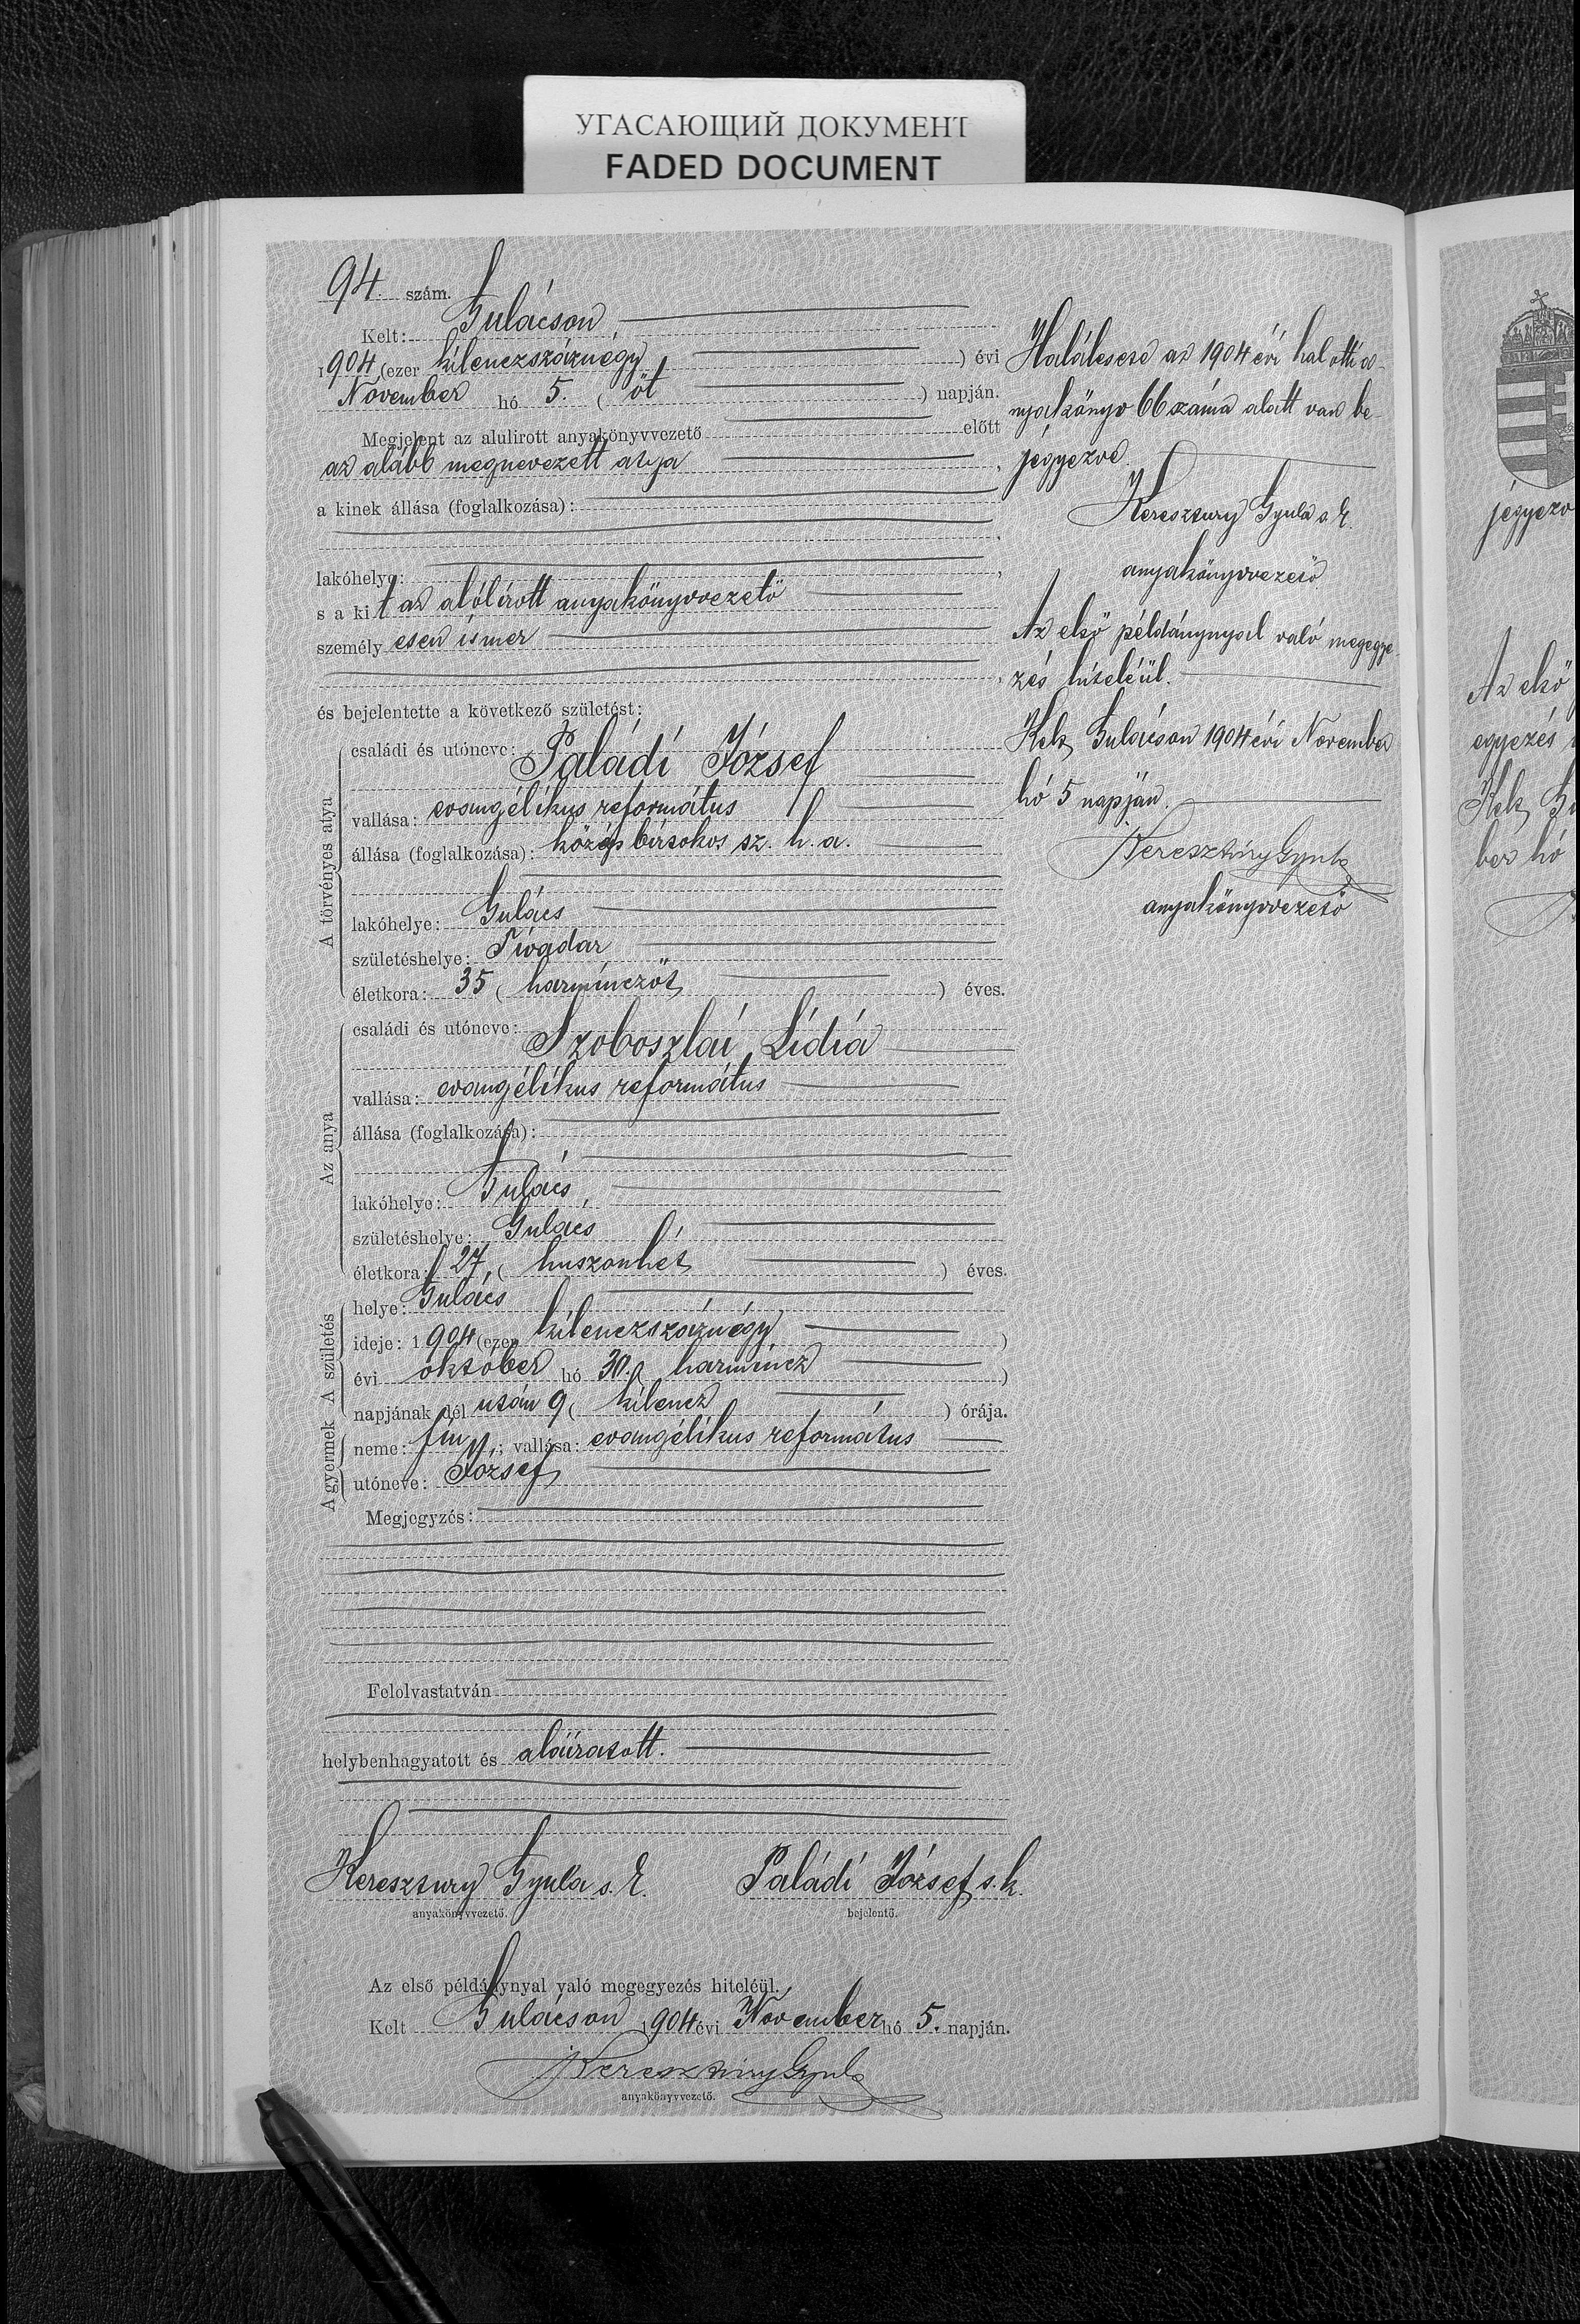 УГАСАЮЩИЙ ДОКУМЕНТ
FADED DOCUMENT
94. szám.
Kelt: Gulácson,
1904 (ezer kilenczszáznégy ) évi
November hó 5. ( öt ) napján.
Megjelent az alulirott anyakönyvvezető előtt
az alább megnevezett atyja ,
a kinek állása (foglalkozása):
lakóhelye: ,
s a kit az alólírott anyakönyvvezető
személyesen ismer
és bejelentette a következő születést:
A törvényes atya
családi és utóneve: Paládi József
vallása: evangélikus református
állása (foglalkozása): középbirtokos sz. h. a.
lakóhelye: Gulács
születéshelye: Tivadar
életkora: 35 ( harminczöt ) éves.
Az anya
családi és utóneve: Szoboszlai Lidia
vallása: evangélikus református
állása (foglalkozása):
lakóhelye: Gulács,
születéshelye: Gulács
életkora: 27, ( huszonhét ) éves.
A születés
helye: Gulács
ideje: 1904 (ezer kilenczszáznégy )
évi október hó 30. ( harmincz )
napjának dél után 9 ( kilencz ) órája.
A gyermek
neme: fiu, ; vallása: evangélikus református
utóneve: József
Megjegyzés:
Felolvastatván
helybenhagyatott és aláíratott.
Keresztury Gyula s. k. Paládi József s. k.
anyakönyvvezető. bejelentő.
Az első példánynyal való megegyezés hiteléül.
Kelt Gulácson 1904 évi November hó 5. napján.
Keresztúry Gyula
anyakönyvvezető.
Halálesese az 1904 évi halotti a-
nyakönyv 66 száma alatt van be-
jegyezve.
Keresztury Gyula s. k.
anyakönyvvezető
Az első példánynyal való megegye-
zés hiteléül.
Kelt, Gulácson 1904 évi November
hó 5 napján.
Keresztúry Gyula
anyakönyvvezető
jegyezv
Az első
egyezés
Kelt, Gu
ber hó